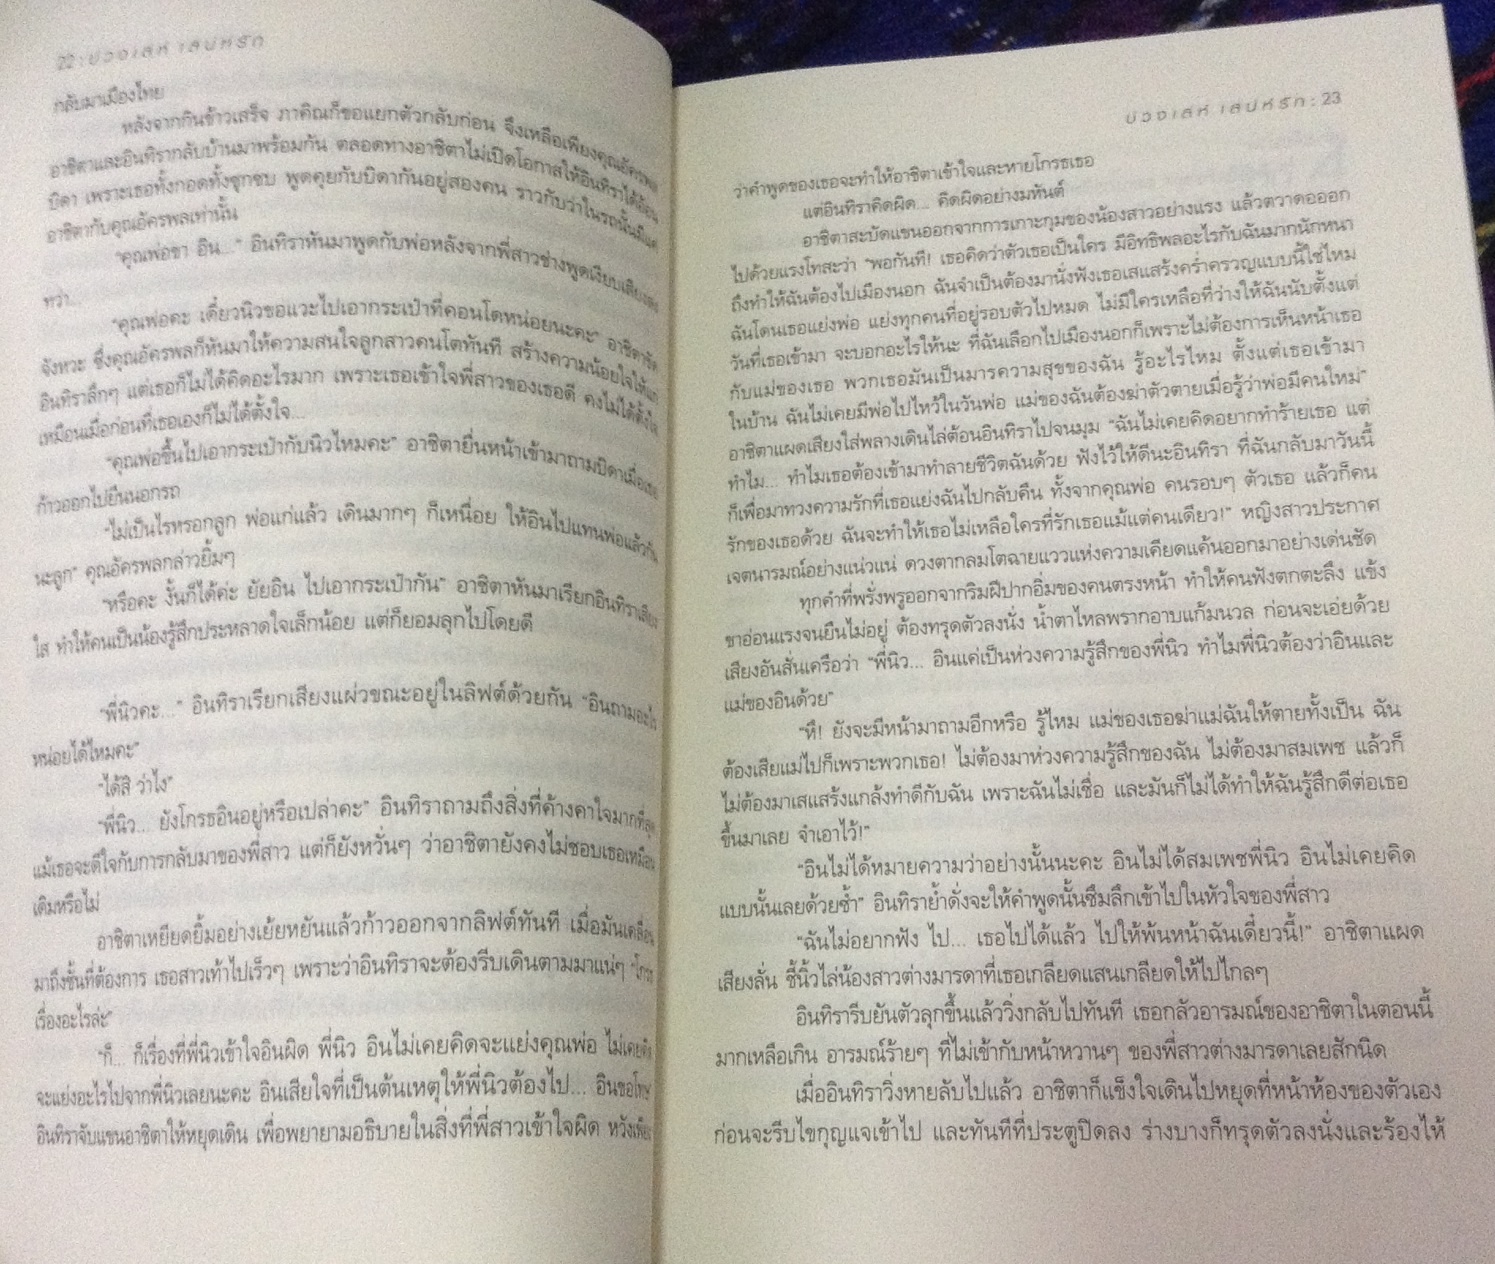 22 : บ่วงเล่ห์ เสน่หรัก
กลับมาเมืองไทย
หลังจากกินข้าวเสร็จ ภาคิณก็ขอแยกตัวกลับก่อน จึงเหลือเพียงคุณอัครพล
อาชิตาและอินทิรากลับบ้านมาพร้อมกัน ตลอดทางอาชิตาไม่เปิดโอกาสให้อินทิราได้
บิดา เพราะเธอทั้งกอดทั้งซุกซบ พูดคุยกับบิดากันอยู่สองคน ราวกับว่าในรถนั้นมีแค่
อาชิตากับคุณอัครพลเท่านั้น
"คุณพ่อขา อิน..." อินทิราหันมาพูดกับพ่อหลังจากพี่สาวช่างพูดเงียบเสียงลง
ทว่า...
"คุณพ่อคะ เดี๋ยวนิวขอแวะไปเอากระเป๋าที่คอนโดหน่อยนะคะ" อาชิตาขัด
จังหวะ ซึ่งคุณอัครพลก็หันมาให้ความสนใจลูกสาวคนโตทันที สร้างความน้อยใจให้แก่
อินทิราลึกๆ แต่เธอก็ไม่ได้คิดอะไรมาก เพราะเธอเข้าใจพี่สาวของเธอดี คงไม่ได้ตั้งใจ
เหมือนเมื่อก่อนที่เธอเองก็ไม่ได้ตั้งใจ...
"คุณพ่อขึ้นไปเอากระเป๋ากับนิวไหมคะ" อาชิตายื่นหน้าเข้ามาถามบิดาเมื่อเธอ
ก้าวออกไปยืนนอกรถ
"ไม่เป็นไรหรอกลูก พ่อแก่แล้ว เดินมากๆ ก็เหนื่อย ให้อินไปแทนพ่อแล้วกัน
นะลูก" คุณอัครพลกล่าวยิ้มๆ
"หรือคะ งั้นก็ได้ค่ะ ยัยอิน ไปเอากระเป๋ากัน" อาชิตาหันมาเรียกอินทิราเสียง
ใส ทำให้คนเป็นน้องรู้สึกประหลาดใจเล็กน้อย แต่ก็ยอมลุกไปโดยดี
"พี่นิวคะ..." อินทิราเรียกเสียงแผ่วขณะอยู่ในลิฟต์ด้วยกัน "อินถามอะไร
หน่อยได้ไหมคะ"
"ได้สิ ว่าไง"
"พี่นิว... ยังโกรธอินอยู่หรือเปล่าคะ" อินทิราถามถึงสิ่งที่ค้างคาใจมากที่สุด
แม้เธอจะดีใจกับการกลับมาของพี่สาว แต่ก็ยังหวั่นๆ ว่าอาชิตายังคงไม่ชอบเธอเหมือน
เดิมหรือไม่
อาชิตาเหยียดยิ้มอย่างเย้ยหยันแล้วก้าวออกจากลิฟต์ทันที เมื่อมันเคลื่อน
มาถึงชั้นที่ต้องการ เธอสาวเท้าไปเร็วๆ เพราะว่าอินทิราจะต้องรีบเดินตามมาแน่ๆ "โกรธ
เรื่องอะไรล่ะ"
"ก็... ก็เรื่องที่พี่นิวเข้าใจอินผิด พี่นิว อินไม่เคยคิดจะแย่งคุณพ่อ ไม่เคยคิด
จะแย่งอะไรไปจากพี่นิวเลยนะคะ อินเสียใจที่เป็นต้นเหตุให้พี่นิวต้องไป... อินขอโทษ"
อินทิราจับแขนอาชิตาให้หยุดเดิน เพื่อพยายามอธิบายในสิ่งที่พี่สาวเข้าใจผิด หวังเพียง
บ่วงเล่ห์ เสน่หรัก : 23
ว่าคำพูดของเธอจะทำให้อาชิตาเข้าใจและหายโกรธเธอ
แต่อินทิราคิดผิด... คิดผิดอย่างมหันต์
อาชิตาสะบัดแขนออกจากการเกาะกุมของน้องสาวอย่างแรง แล้วตวาดอออก
ไปด้วยแรงโทสะว่า "พอกันที! เธอคิดว่าตัวเธอเป็นใคร มีอิทธิพลอะไรกับฉันมากนักหนา
ถึงทำให้ฉันต้องไปเมืองนอก ฉันจำเป็นต้องมานั่งฟังเธอเสแสร้งคร่ำครวญแบบนี้ใช่ไหม
ฉันโดนเธอแย่งพ่อ แย่งทุกคนที่อยู่รอบตัวไปหมด ไม่มีใครเหลือที่ว่างให้ฉันนับตั้งแต่
วันที่เธอเข้ามา จะบอกอะไรให้นะ ที่ฉันเลือกไปเมืองนอกก็เพราะไม่ต้องการเห็นหน้าเธอ
กับแม่ของเธอ พวกเธอมันเป็นมารความสุขของฉัน รู้อะไรไหม ตั้งแต่เธอเข้ามา
ในบ้าน ฉันไม่เคยมีพ่อไปไหว้ในวันพ่อ แม่ของฉันต้องฆ่าตัวตายเมื่อรู้ว่าพ่อมีคนใหม่"
อาชิตาแผดเสียงใส่พลางเดินไล่ต้อนอินทิราไปจนมุม "ฉันไม่เคยคิดอยากทำร้ายเธอ แต่
ทำไม... ทำไมเธอต้องเข้ามาทำลายชีวิตฉันด้วย ฟังไว้ให้ดีนะอินทิรา ที่ฉันกลับมาวันนี้
ก็เพื่อมาทวงความรักที่เธอแย่งฉันไปกลับคืน ทั้งจากคุณพ่อ คนรอบๆ ตัวเธอ แล้วก็คน
รักของเธอด้วย ฉันจะทำให้เธอไม่เหลือใครที่รักเธอแม้แต่คนเดียว!" หญิงสาวประกาศ
เจตนารมณ์อย่างแน่วแน่ ดวงตากลมโตฉายแววแห่งความเคียดแค้นออกมาอย่างเด่นชัด
ทุกคำที่พรั่งพรูออกจากริมฝีปากอิ่มของคนตรงหน้า ทำให้คนฟังตกตะลึง แข้ง
ขาอ่อนแรงจนยืนไม่อยู่ ต้องทรุดตัวลงนั่ง น้ำตาไหลพรากอาบแก้มนวล ก่อนจะเอ่ยด้วย
เสียงอันสั่นเครือว่า "พี่นิว... อินแค่เป็นห่วงความรู้สึกของพี่นิว ทำไมพี่นิวต้องว่าอินและ
แม่ของอินด้วย"
"หึ! ยังจะมีหน้ามาถามอีกหรือ รู้ไหม แม่ของเธอฆ่าแม่ฉันให้ตายทั้งเป็น ฉัน
ต้องเสียแม่ไปก็เพราะพวกเธอ! ไม่ต้องมาห่วงความรู้สึกของฉัน ไม่ต้องมาสมเพช แล้วก็
ไม่ต้องมาเสแสร้งแกล้งทำดีกับฉัน เพราะฉันไม่เชื่อ และมันก็ไม่ได้ทำให้ฉันรู้สึกดีต่อเธอ
ขึ้นมาเลย จำเอาไว้!"
"อินไม่ได้หมายความว่าอย่างนั้นนะคะ อินไม่ได้สมเพชพี่นิว อินไม่เคยคิด
แบบนั้นเลยด้วยซ้ำ" อินทิราย้ำดั่งจะให้คำพูดนั้นซึมลึกเข้าไปในหัวใจของพี่สาว
"ฉันไม่อยากฟัง ไป... เธอไปได้แล้ว ไปให้พ้นหน้าฉันเดี๋ยวนี้!" อาชิตาแผด
เสียงลั่น ชี้นิ้วไล่น้องสาวต่างมารดาที่เธอเกลียดแสนเกลียดให้ไปไกลๆ
อินทิรารีบยันตัวลุกขึ้นแล้ววิ่งกลับไปทันที เธอกลัวอารมณ์ของอาชิตาในตอนนี้
มากเหลือเกิน อารมณ์ร้ายๆ ที่ไม่เข้ากับหน้าหวานๆ ของพี่สาวต่างมารดาเลยสักนิด
เมื่ออินทิราวิ่งหายลับไปแล้ว อาชิตาก็แข็งใจเดินไปหยุดที่หน้าห้องของตัวเอง
ก่อนจะรีบไขกุญแจเข้าไป และทันทีที่ประตูปิดลง ร่างบางก็ทรุดตัวลงนั่งและร้องไห้